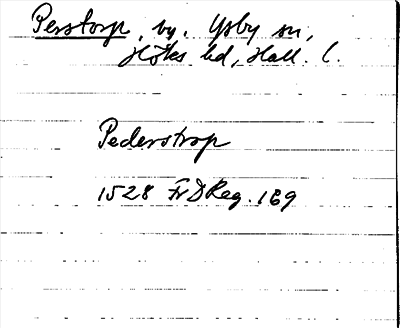 Perstorp, by, Ysby sn,
Höks hd, Hall. l.
Pederstrop
1528 FrDReg. 189